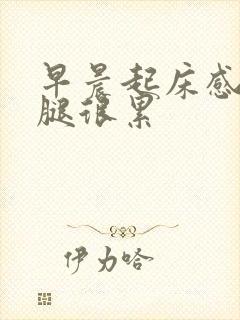 早晨起床感
腿很累
伊力哈